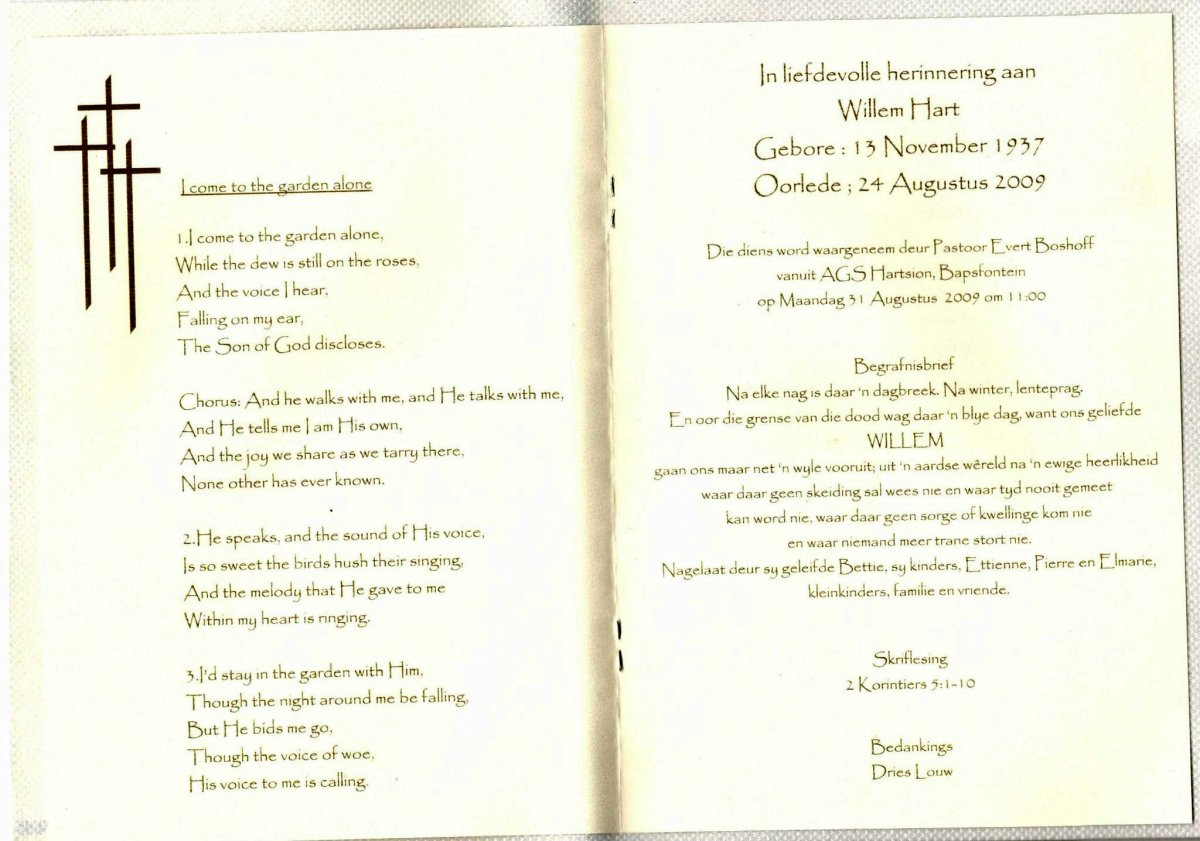 I come to the garden alone
1.I come to the garden alone,
While the dew is still on the roses,
And the voice I hear,
Falling on my ear,
The Son of God discloses.
Chorus: And he walks with me, and He talks with me,
And He tells me I am His own,
And the joy we share as we tarry there,
None other has ever known.
2.He speaks, and the sound of His voice,
Is so sweet the birds hush their singing,
And the melody that He gave to me
Within my heart is ringing.
3.I'd stay in the garden with Him,
Though the night around me be falling,
But He bids me go,
Though the voice of woe,
His voice to me is calling.
In liefdevolle herinnering aan
Willem Hart
Gebore : 13 November 1937
Oorlede ; 24 Augustus 2009
Die diens word waargeneem deur Pastoor Evert Boshoff
vanuit AGS Hartsion, Bapsfontein
op Maandag 31 Augustus 2009 om 11:00
Begrafnisbrief
Na elke nag is daar 'n dagbreek. Na winter, lenteprag.
En oor die grense van die dood wag daar 'n blye dag, want ons geliefde
WILLEM
gaan ons maar net 'n wyle vooruit; uit 'n aardse wêreld na 'n ewige heerlikheid
waar daar geen skeiding sal wees nie en waar tyd nooit gemeet
kan word nie, waar daar geen sorge of kwellinge kom nie
en waar niemand meer trane stort nie.
Nagelaat deur sy geleifde Bettie, sy kinders, Ettienne, Pierre en Elmarie,
kleinkinders, familie en vriende.
Skriflesing
2 Korintiers 5:1-10
Bedankings
Dries Louw